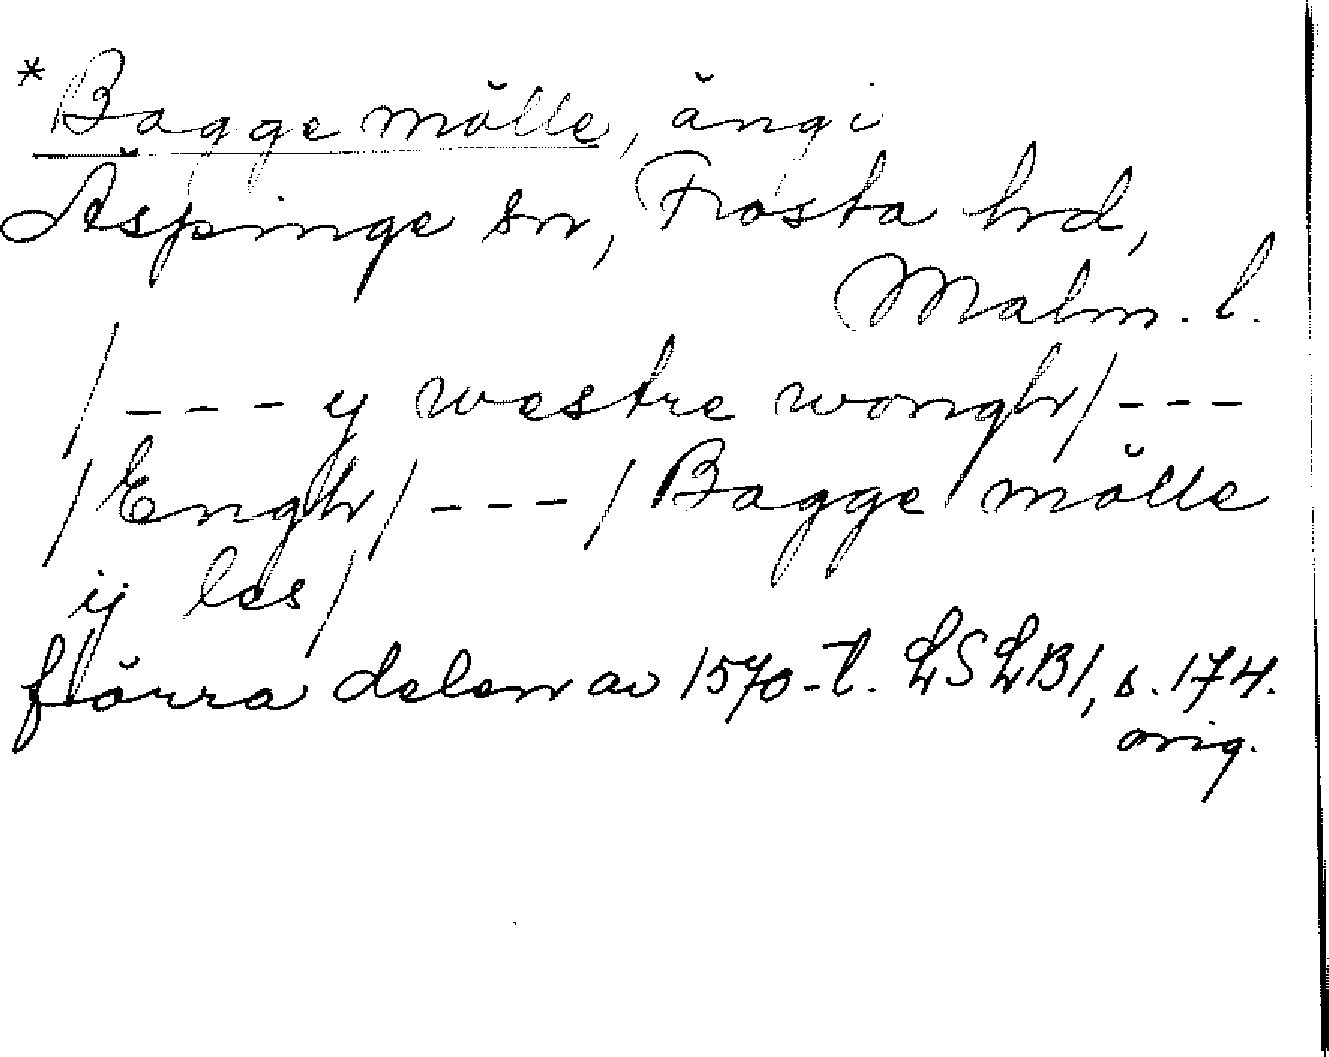 *Bagge mölle, äng i
Äspinge sn, Frosta hrd,
Malm. l.
/--- y westre wongh/---
/Engh/---/Bagge mölle
ij les/
förra delen av 1570-t. LSLB1, s. 174.
orig.